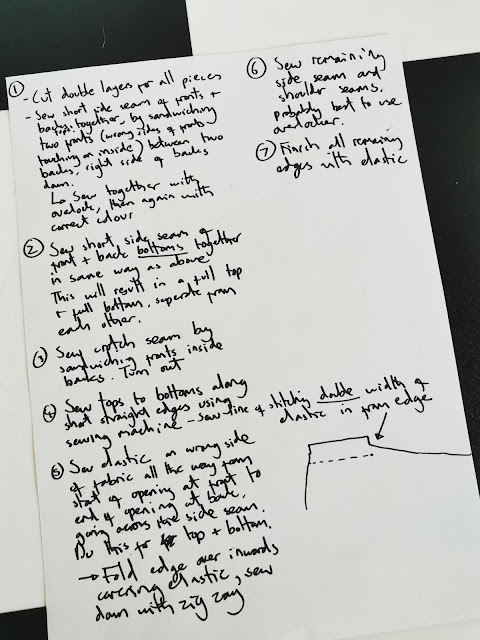 ①
- Cut double layers for all pieces
- Sew short side seam of fronts +
backs tops together, by sandwiching
two fronts (wrong sides of fronts
touching on inside) between two
backs, right side of backs
down.
↳ Sew together with
overlock, then again with
correct colour
② Sew short side seam of
front + back bottoms together
in same way as above.
This will result in a full top
+ full bottom, seperate from
each other.
③ Sew crotch seam by
sandwiching fronts inside
backs. Turn out
④ Sew tops to bottoms along
short straight edges using
sewing machine - sew line of stitching double width of
elastic in from edge
⑤ Sew elastic on wrong side
of fabric all the way from
start of opening at front to
end of opening at back,
going across the side seam.
Do this for top + bottom.
→ Fold edge over inwards
covering elastic, sew
down with zig zag
⑥ Sew remaining
side seam and
shoulder seams.
Probably best to use
overlocker.
⑦ Finish all remaining
edges with elastic